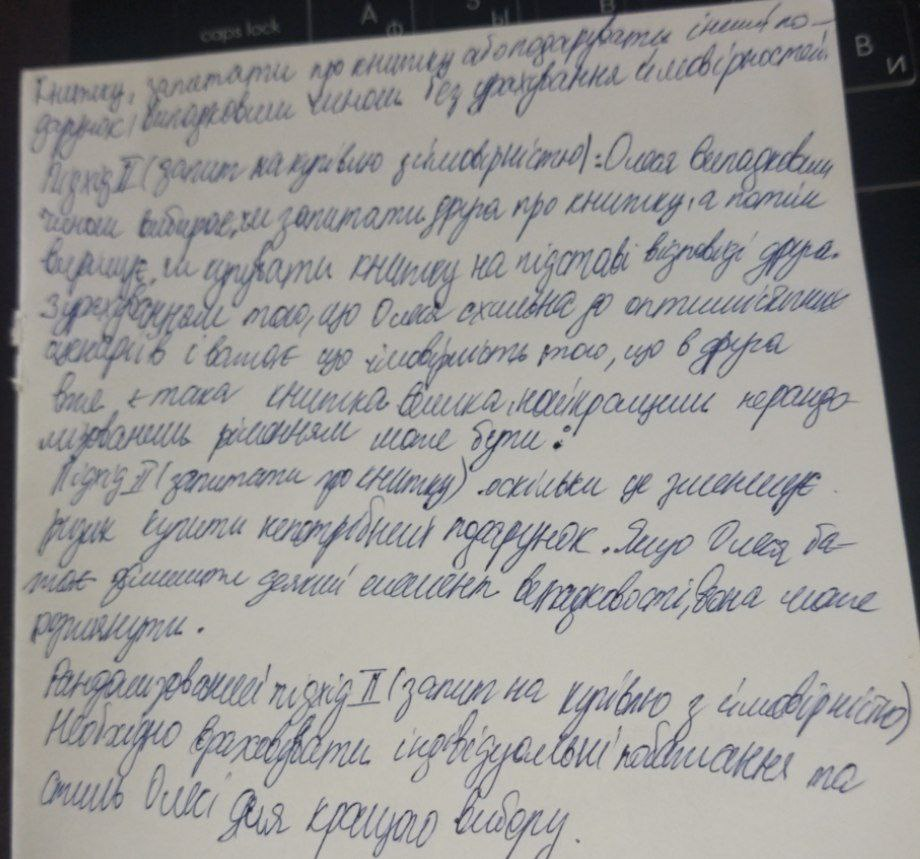 caps lock
А
Ф
Ы
В
В
И
книжку, запитати про книжку або подарувати інший по-
дарунок) випадковим чином без урахування ймовірностей.
Підхід II (запит на купівлю з ймовірністю): Олеся випадковим
чином вибирає, чи запитати друга про книжку, а потім
вирішує, чи купувати книжку на підставі відповіді друга.
З урахуванням того, що Олеся схильна до оптимістичних
сценаріїв і вважає що ймовірність того, що в друга
вже є така книжка велика, найкращим нерандо-
мізованим рішенням може бути:
Підхід II (запитати про книжку) оскільки це зменшує
ризик купити непотрібний подарунок. Якщо Олеся ба-
жає залишити деякий елемент випадковості, вона може
розглянути.
Рандомізований підхід II (запит на купівлю з ймовірністю)
Необхідно враховувати індивідуальні побажання та
стиль Олесі для кращого вибору.